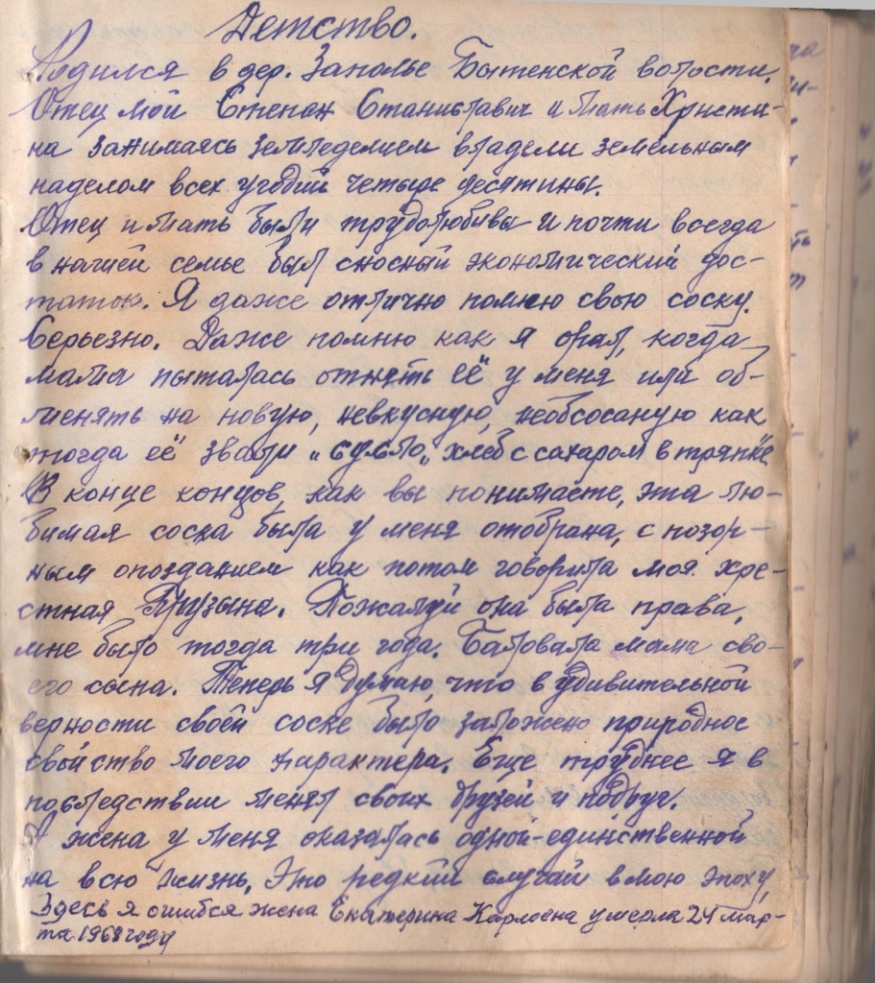 Детство.
Родился в дер. Заполье Бытенской волости.
Отец мой Степан Станиславич и мать Христи-
на занимаясь земледелием владели земельным
наделом всех угодий четыре десятины.
Отец и мать были трудолюбивы и почти всегда
в нашей семье был сносный экономический дос-
таток. Я даже отлично помню свою соску.
Серьезно. Даже помню как я орал, когда
мама пыталась отнять её у меня или об-
менять на новую, невкусную, необсосаную как
тогда её звали „сусло„ хлеб с сахаром в тряпке
В конце концов, как вы понимаете, эта лю-
бимая соска была у меня отобрана, с позор-
ным опозданием как потом говорила моя хре-
стная Прузына. Пожалуй она была права,
мне было тогда три года. Баловала мама сво-
его сына. Теперь я думаю, что в удивительной
верности своей соске было заложено природное
свойство моего характера. Еще труднее я в
последствии менял своих друзей и подруг.
А жена у меня оказалась одной-единственной
на всю жизнь. Это редкий случай в мою эпоху,
Здесь я ошибся жена Екатерина Карловна умерла 24 мар-
та 1968 году